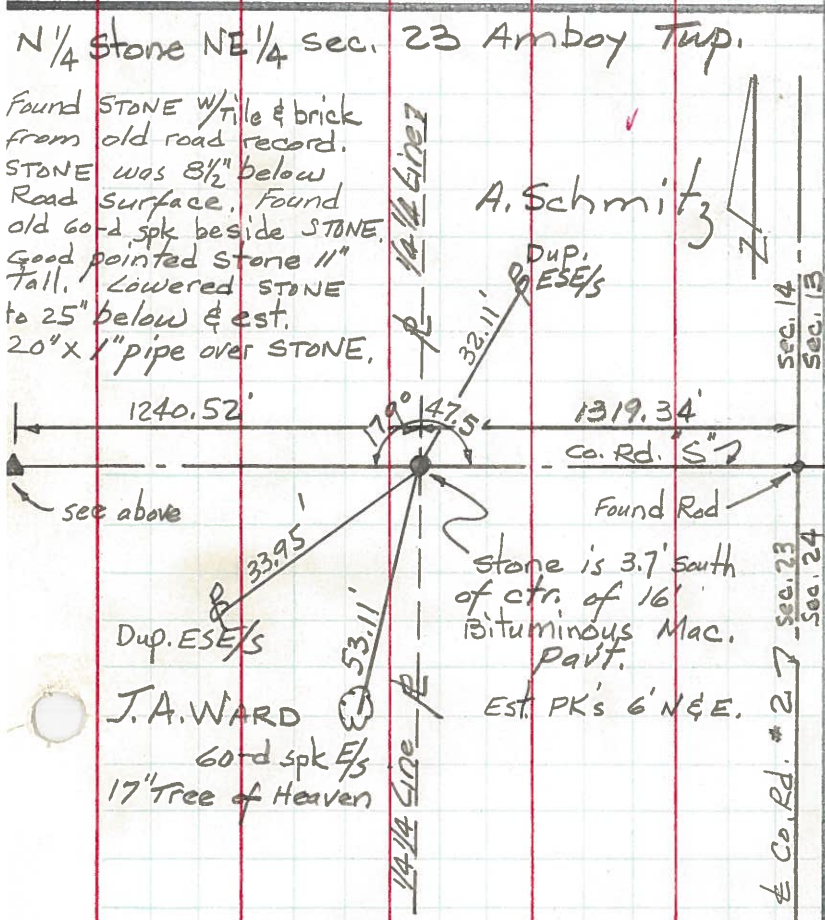 N 1/4 Stone NE 1/4 Sec. 23 Amboy Twp.
Found STONE W/Tile & brick
from old road record.
STONE was 8½" below
Road Surface. Found
old 60-d spk beside STONE.
Good pointed stone 11"
Tall. Lowered STONE
to 25" below & est.
20" X 1" pipe over STONE.
1/4 1/4 Line
A. Schmitz
Dup.
ESE/S
32.11'
N
Sec. 14
Sec. 13
1240.52'
179° 47.5'
1319.34'
Co. Rd. "S"
see above
Found Rod
33.95'
Dup. ESE/S
53.11'
Stone is 3.7' South
of ctr. of 16'
Bituminous Mac.
Pav't.
Est. PK's 6' N & E.
Sec. 23
Sec. 24
J.A. WARD
60-d spk E/S
17" Tree of Heaven
1/4 1/4 Line
℄ Co. Rd. # 27